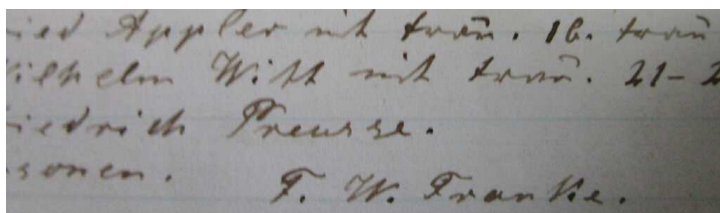 ied Appler mit Frau. 16. Frau
ilhelm Witt mit Frau. 21-2
iedrich Preusse.
sonen.
F. W. Franke.